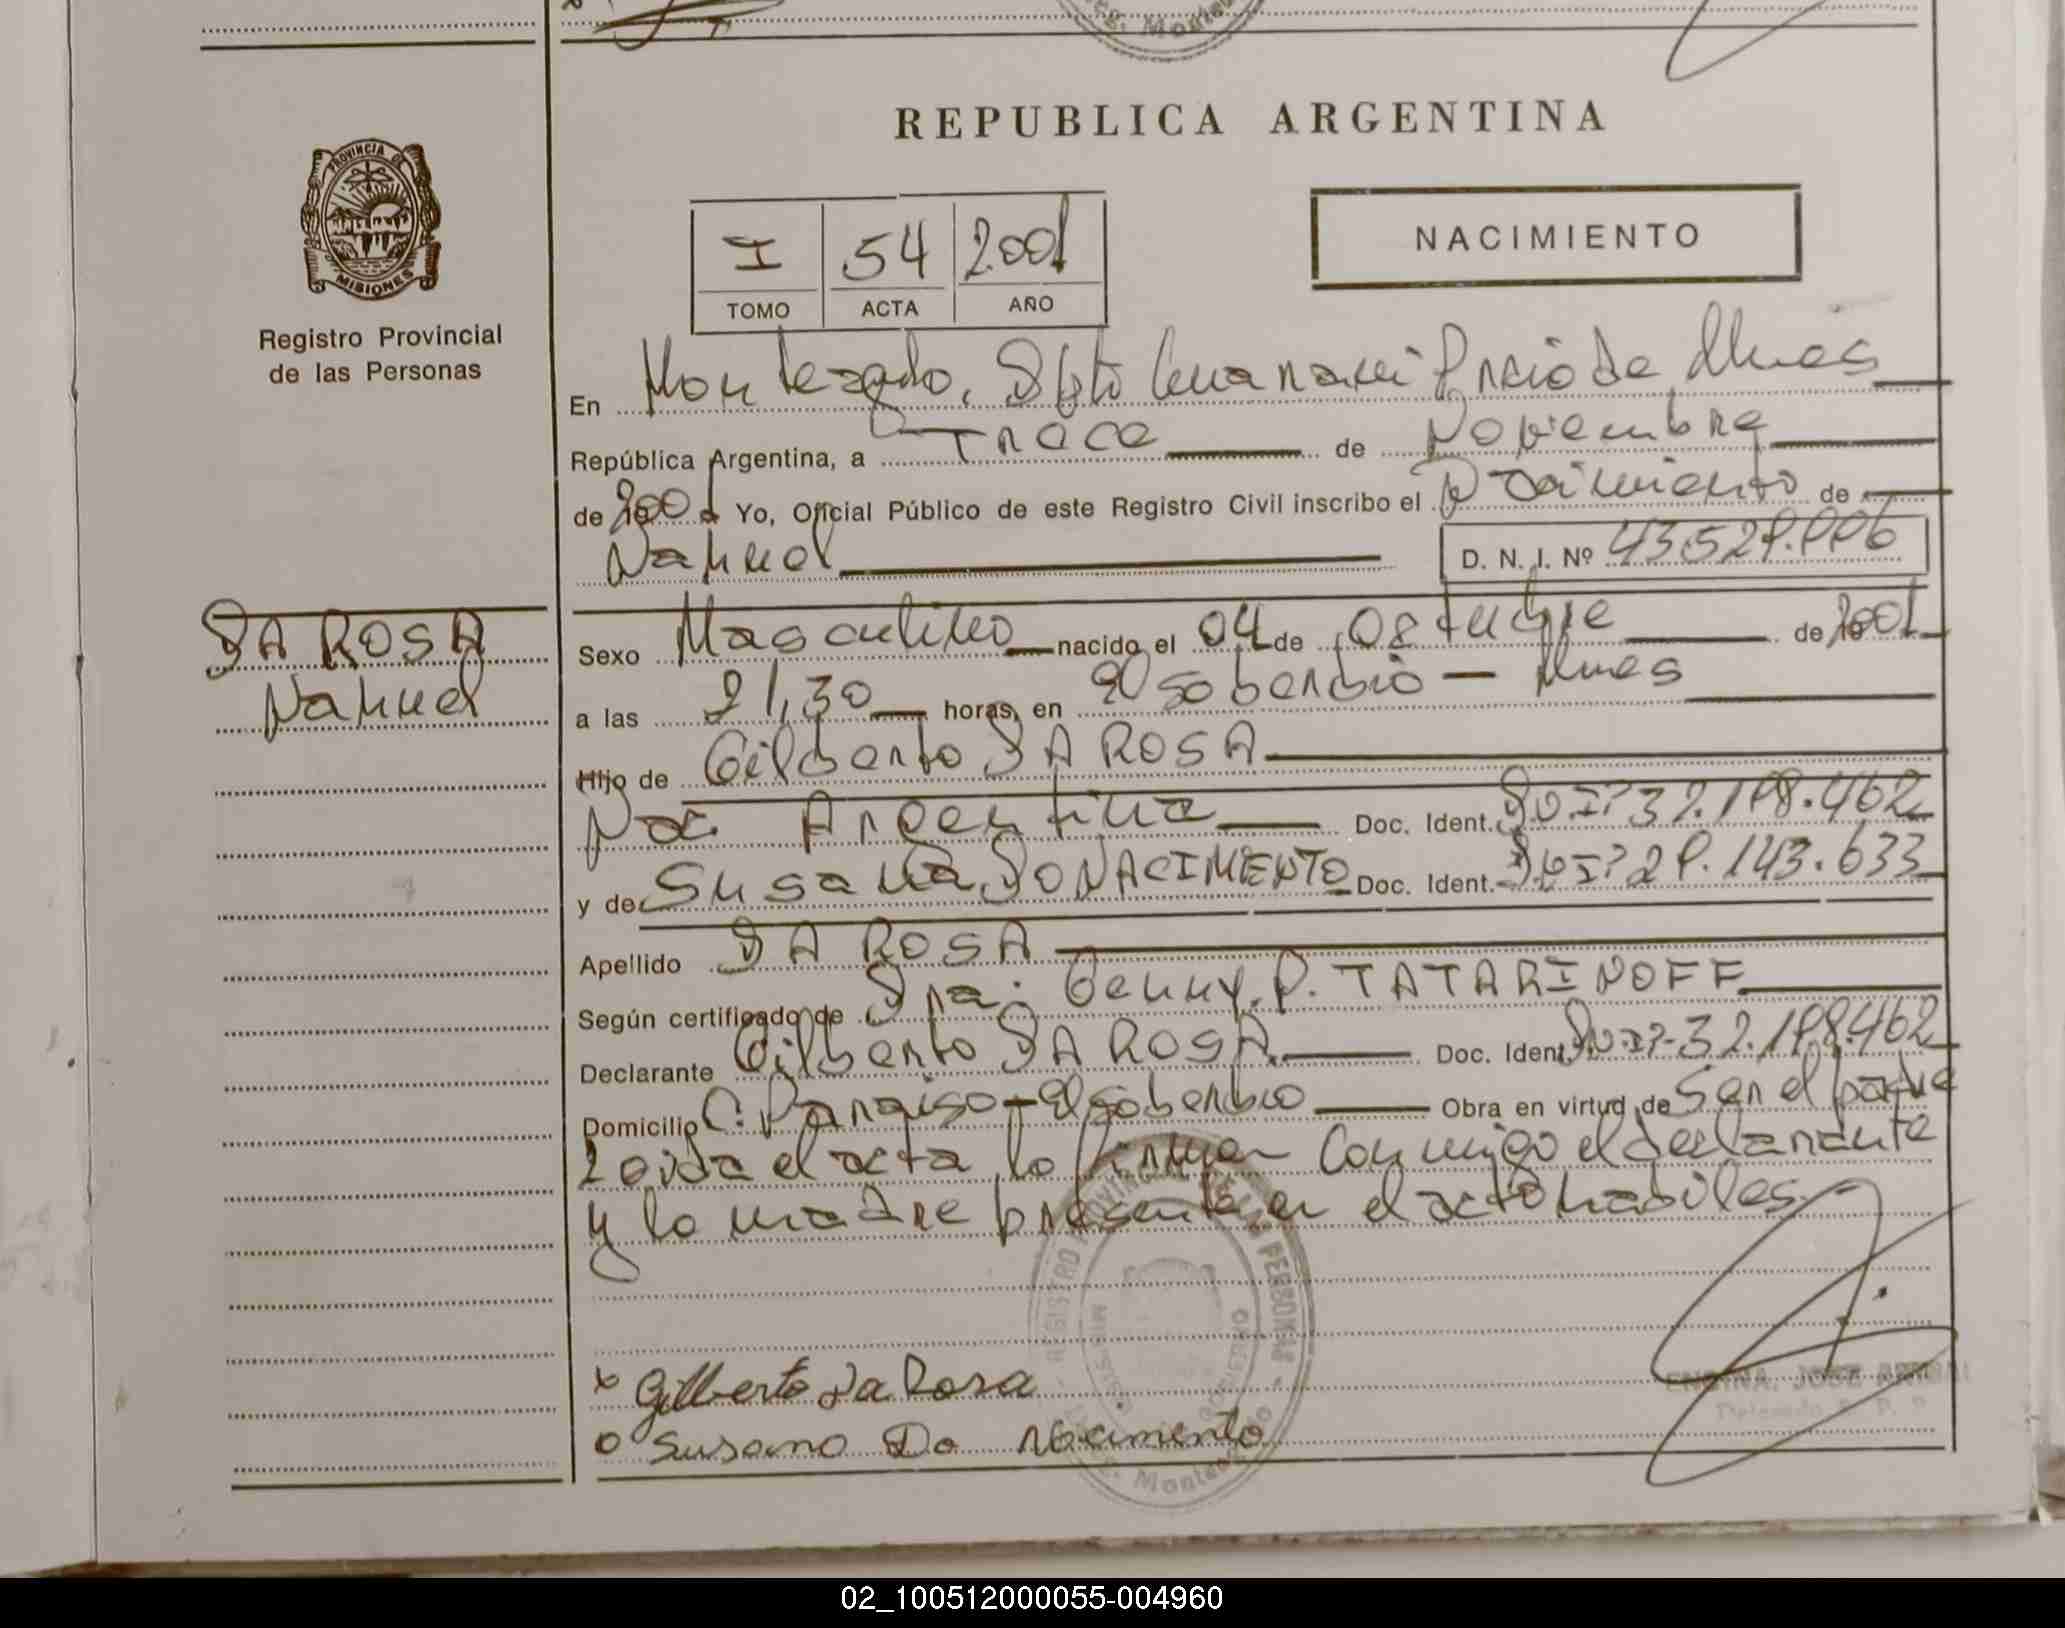 REPUBLICA ARGENTINA
PROVINCIA DE
MISIONES
Registro Provincial
de las Personas
I 54 2001
TOMO ACTA AÑO
NACIMIENTO
En Montecarlo, Dpto Pncia de Mnes
República Argentina, a Trece de Noviembre
de 2001 Yo, Oficial Público de este Registro Civil inscribo el Nacimiento de
Nahuel
D. N. I. Nº
DA ROSA
Nahuel
Sexo Masculino nacido el 04 de Octubre de 2001
a las 21,30 horas, en El Soberbio - Mnes
Hijo de Gilberto DA ROSA
Nac. Argentina Doc. Ident.
y de Susana DO NACIMIENTO Doc. Ident.
Apellido DA ROSA
Según certificado de Dra. TATARINOFF
Declarante Gilberto DA ROSA Doc. Ident.
Domicilio C. Paraiso - El Soberbio Obra en virtud de Ser el padre
Leida el acta, la firman conmigo el declarante
y la madre presente en el acto habiles
REGISTRO PROVINCIAL DE LAS PERSONAS
MISIONES
x Gilberto Da Rosa
o Susana Do
ENCINA, JOSE
Delegado R. P. P
02_100512000055-004960